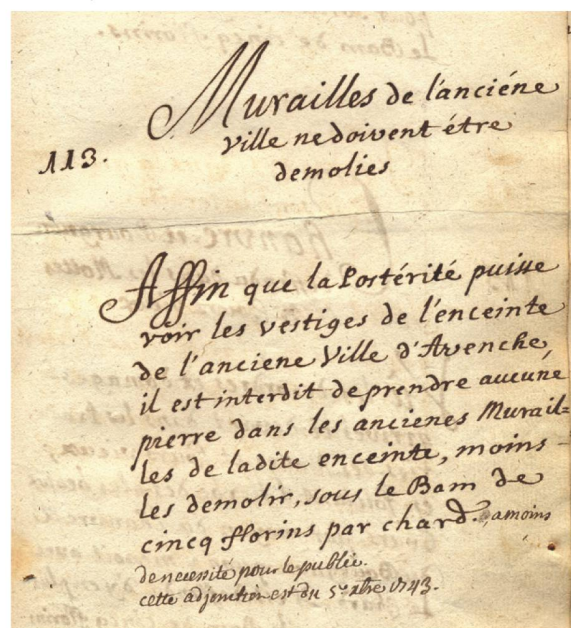 Murailles de l'anciéne
ville ne doivent étre
113.
demolies
Affin que la Postérité puisse
voir les vestiges de l'enceinte
de l'anciene Ville d'Avenche,
il est interdit de prendre aucune
pierre dans les ancienes Murail=
les de ladite enceinte, moins
les demolir, sous le Bam de
cincq fflorins par chard. , a moins
de necessité pour le publicq.
cette adjonction est du 5e xbre 1743.